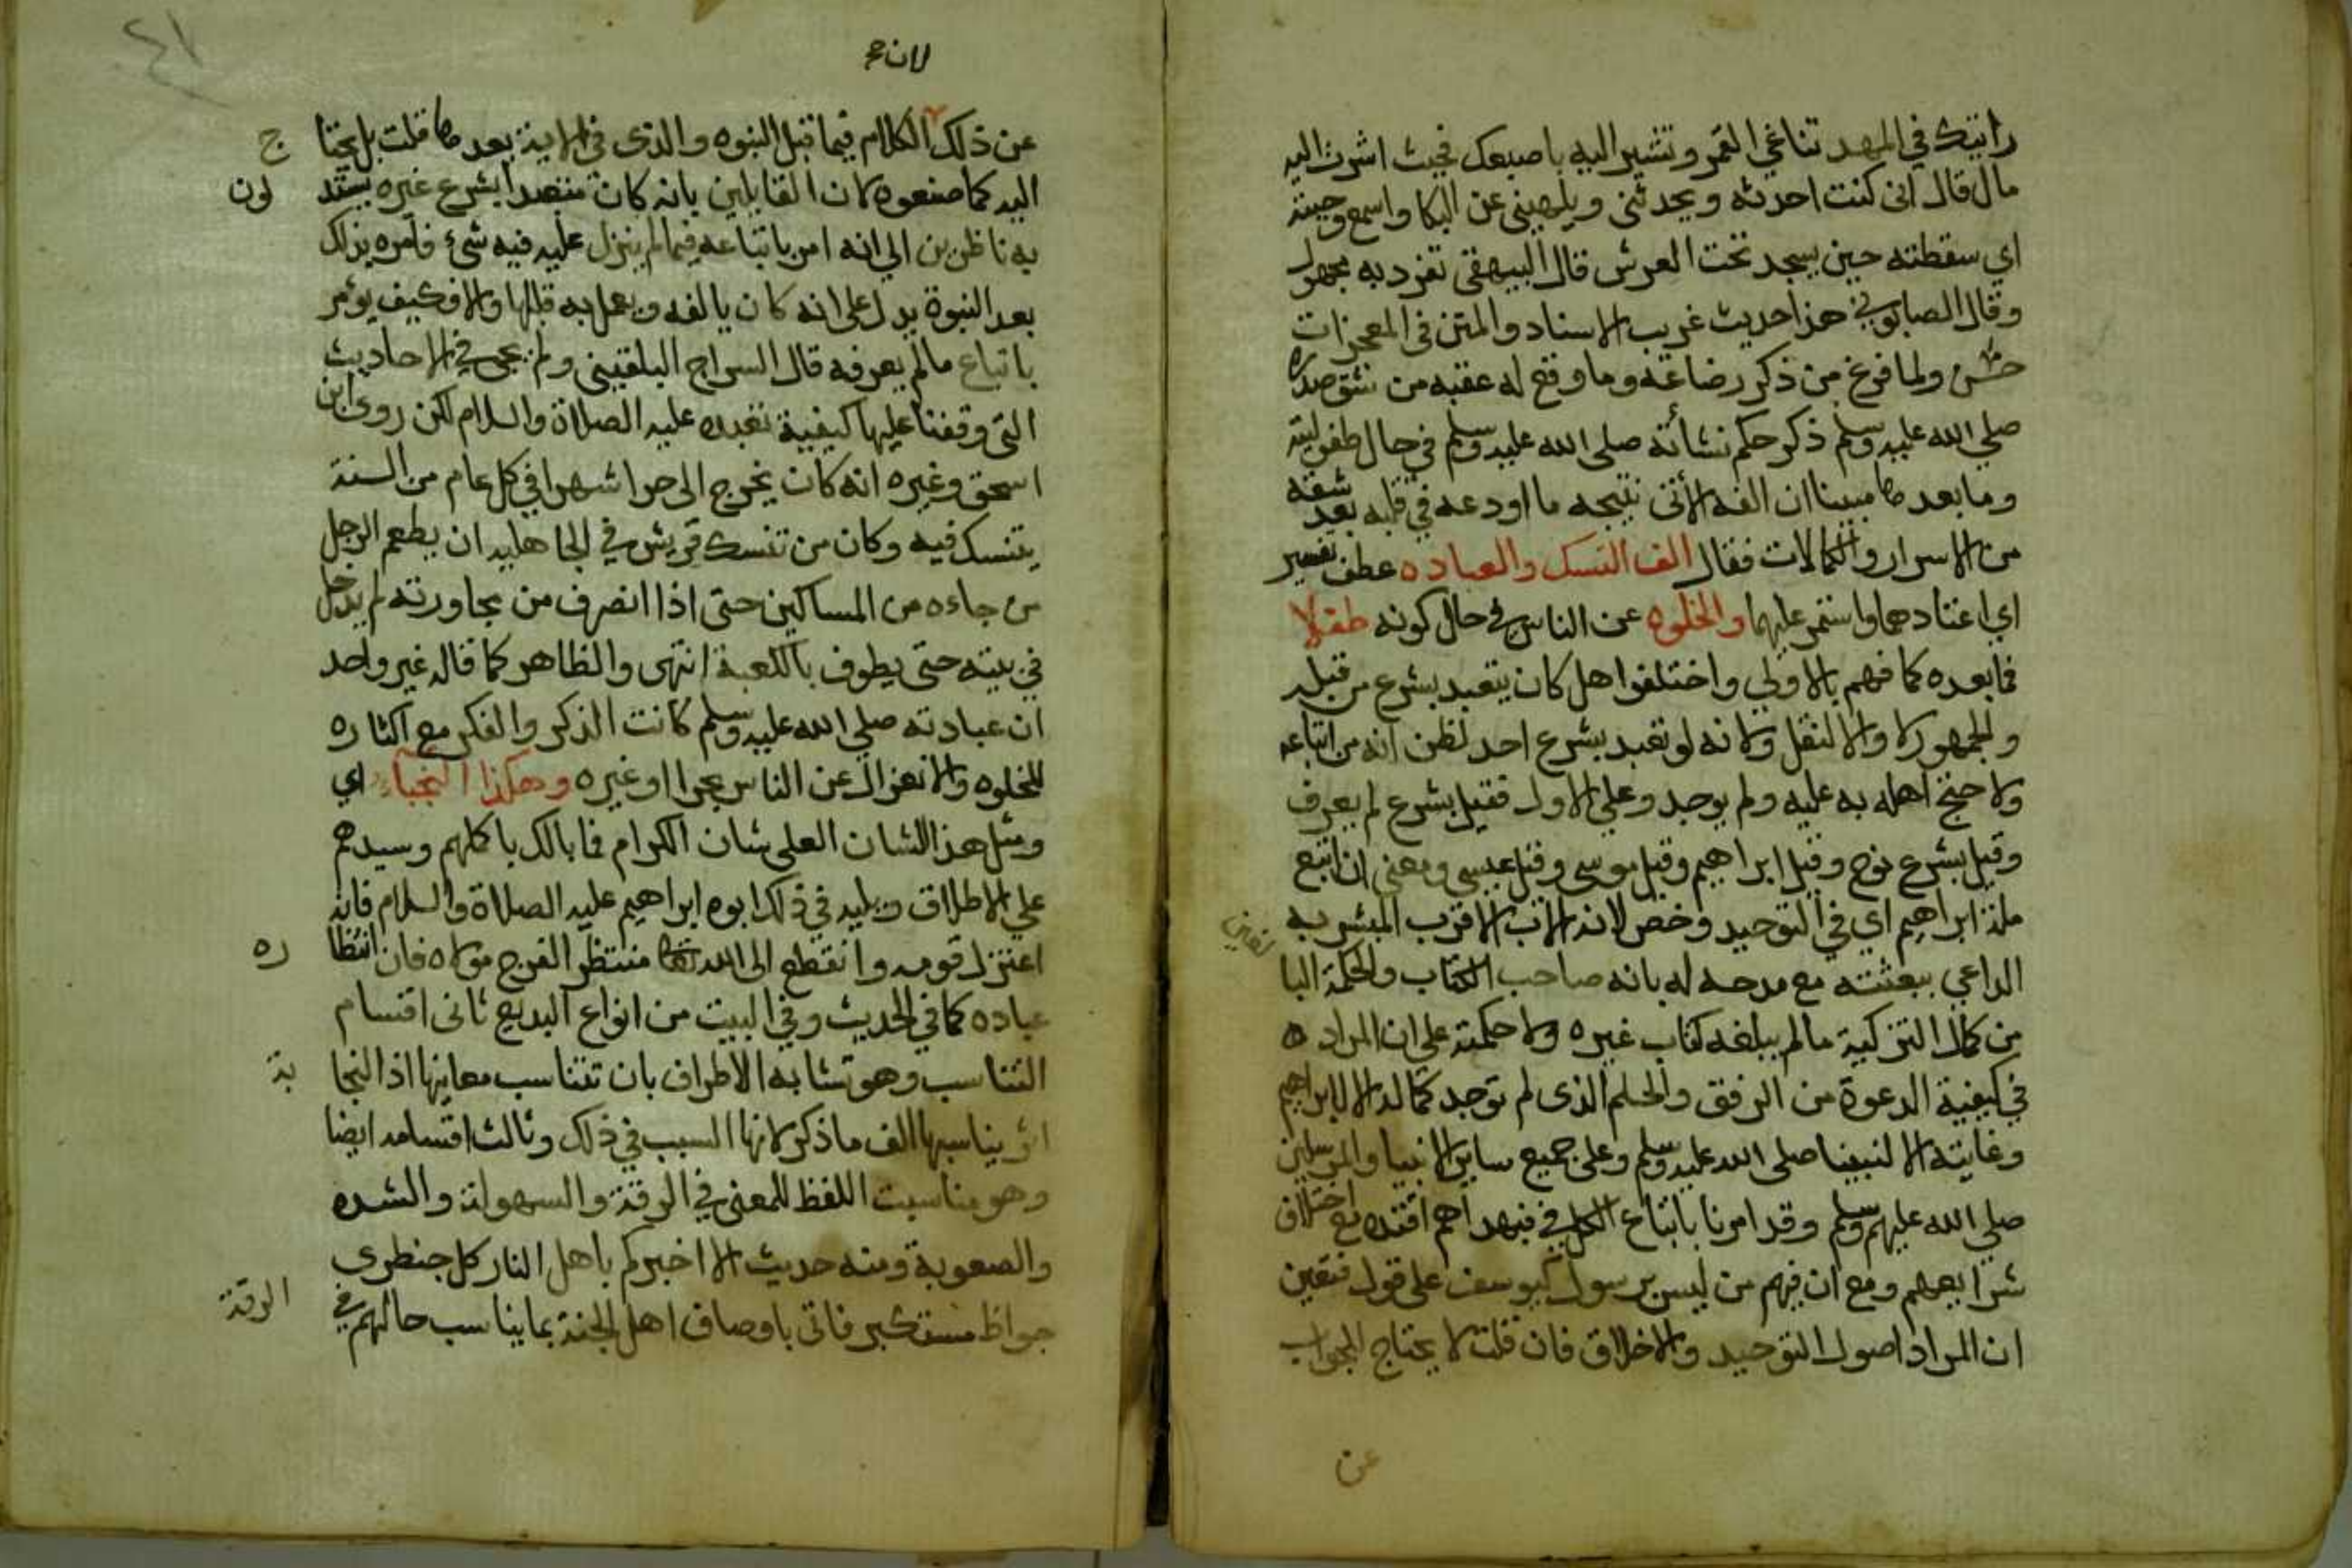 رايتك في المهد تناغي القمر وتشير اليه باصبعك فحيث اشرت اليه
مال قال اني كنت احدثه ويحدثني ويلهيني عن البكا واسمع وجبته
اي سقطته حين يسجد تحت العرش قال البيهقي تفرد به مجهول
وقال الصابوني هذا حديث غريب الاسناد والمتن في المعجزات
حسن ولما فرغ من ذكر رضاعه وما وقع له عقبه من شق صدره
صلي الله عليه وسلم ذكر حكم نشأته صلى الله عليه وسلم في حال طفوليته
وما بعدها مبينا ان الفه الأتى نتيجه ما اودعه في قلبه بعد شقه
من الاسرار والكمالات فقال الف النسك والعباده عطف تفسير
اي اعتادهما واستمر عليهما والخلوه عن الناس في حال كونه طفلا
فما بعده كما فهم بالاولي واختلفوا هل كان يتعبد بشرع من قبله
والجمهور لا والا لنقل ولانه لو تعبد بشرع احد لظن انه من اتباعه
ولاحتج اهله به عليه ولم يوجد وعلي الاول فقيل بشرع لم يعرف
وقيل بشرع نوح وقيل ابراهيم وقيل موسى وقيل عيسى ومعنى ان اتبع
ملة ابراهيم اي في التوحيد وخص لانه الاب الاقرب المبشر به
الداعي ببعثته مع مدحه له بانه صاحب الكتاب والحكمة البا
لغين
من كمال التزكية مالم يبلغه كتاب غيره ولا حكمته علي ان المراد ه
في كيفية الدعوة من الرفق والحلم الذى لم توجد كماله الا لابراهيم
وغايته الا لنبينا صلى الله عليه وسلم وعلى جميع ساير الانبيا والمرسلين
صلي الله عليهم وسلم وقد امرنا باتباع الكل في فبهداهم اقتده مع اختلاف
شرايعهم ومع ان فيهم من ليس برسول كيوسف على قول فتعين
ان المراد اصول التوحيد والاخلاق فان قلت لا يحتاج للجواب
عن
٤١
لان ح
عن ذلك الكلام فيما قبل النبوه والذى في الاية بعدها قلت بل يحتا
ج
اليه كما صنعوه لان القايلين بانه كان متعبدا بشرع غيره يستد
لون
به ناظرين الي انه امر باتباعه فيما لم ينزل عليه فيه شيء فامره بذلك
بعد النبوة يدل على انه كان يالفه ويعمل به قبلها والا فكيف يؤمر
باتباع مالم يعرفه قال السراج البلقيني ولم يجى في الاحاديث
التى وقفنا عليها كيفية تعبده عليه الصلاة والسلام لكن روى ابن
اسحق وغيره انه كان يخرج الى حرا شهرا في كل عام من السنة
يتنسك فيه وكان من تنسك قريش في الجاهليه ان يطعم الرجل
من جاءه من المساكين حتى اذا انصرف من مجاورته لم يدخل
في بيته حتى يطوف بالكعبة انتهى والظاهر كما قاله غير واحد
ان عبادته صلي الله عليه وسلم كانت الذكر والفكر مع اكثاره
للخلوه والانعزال عن الناس بحرا او غيره وهكذا النجباء اي
ومثل هذا الشان العلي شان الكرام فما بالك باكملهم وسيدهم
علي الاطلاق ويليه في ذلك ابوه ابراهيم عليه الصلاة والسلام فانه
اعتزل قومه وانقطع الى الله تعالى منتظر الفرج مولاه فان انتظا
ره
عباده كما في الحديث وفي البيت من انواع البديع ثانى اقسام
التناسب وهو تشابه الاطراف بان تتناسب معانيها اذ النجا
بة
التى يناسبها الف ما ذكر لانها السبب في ذلك وثالث اقسامه ايضا
وهو مناسبت اللفظ للمعنى في الرقة والسهولة والشده
والصعوبة ومنه حديث الا اخبركم باهل النار كل جنظرى
جواظ مستكبر فاتى باوصاف اهل الجنة بما يناسب حالهم في
الرقة